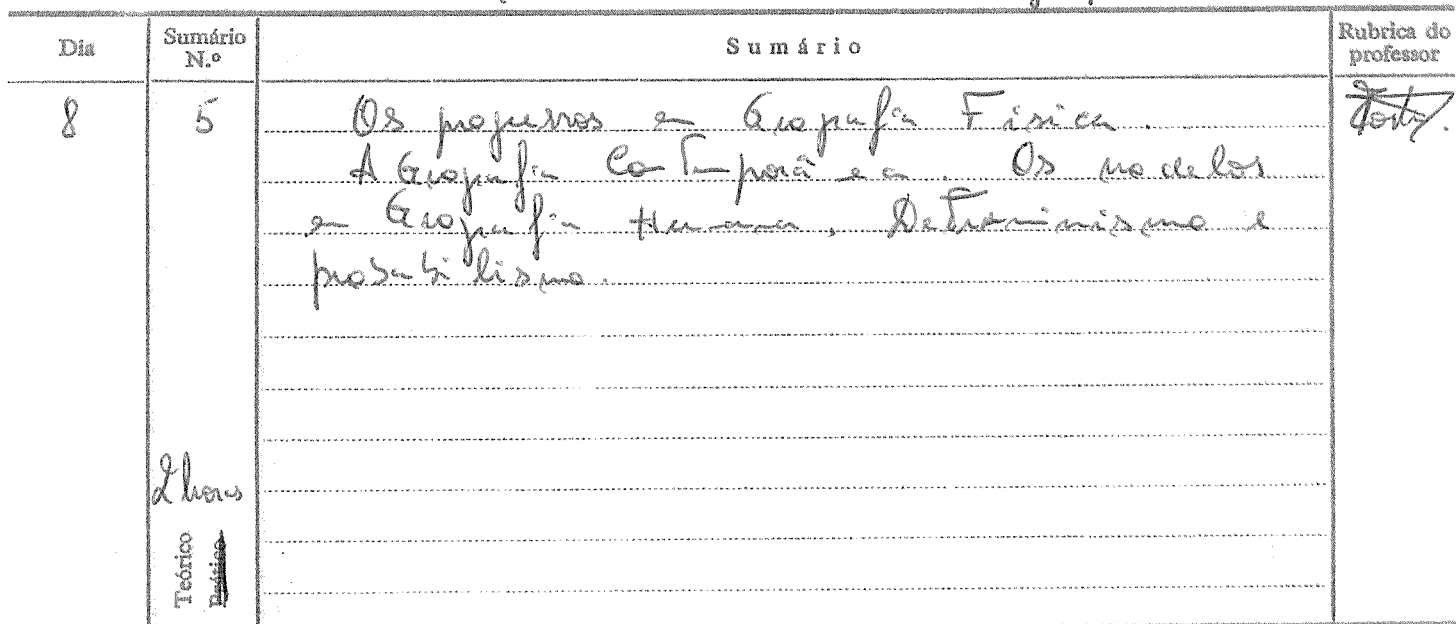 Dia Sumário N.º Sumário Rubrica do professor
8 5 Os progressos em Geografia Física.
A Geografia Contemporânea. Os modelos
em Geografia Humana, Determinismo e
probabilismo.
2 horas
Teórico
Prático